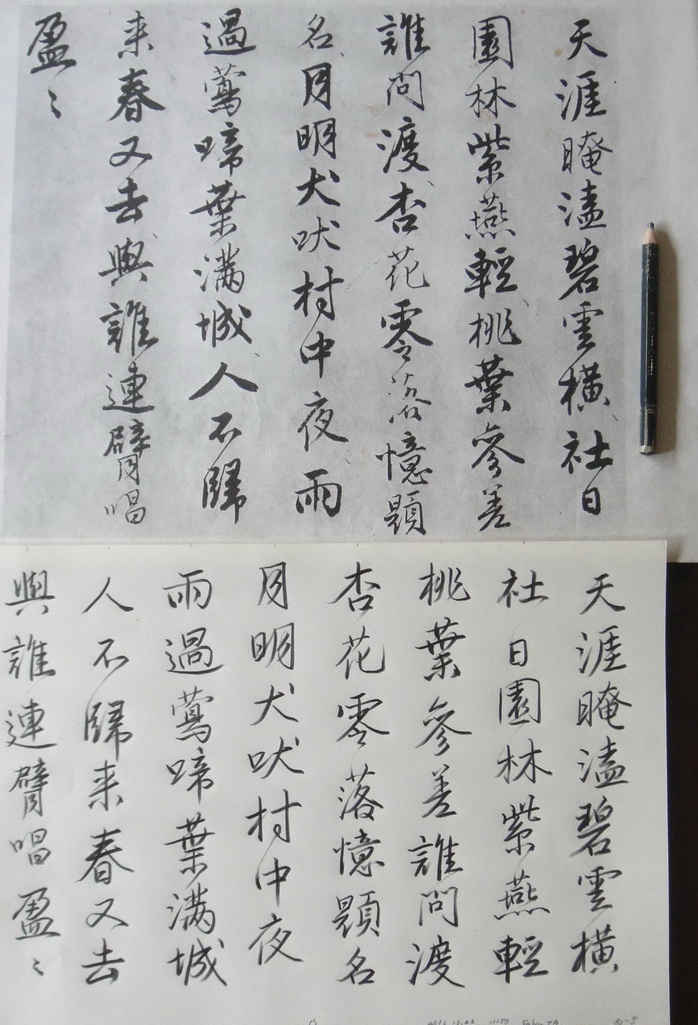 天涯晻溘碧雲橫社日
園林紫燕輕桃葉參差
誰問渡杏花零落憶題
名月明犬吠村中夜雨
過鶯啼葉滿城人不歸
来春又去與誰連臂唱
盈〻
天涯晻溘碧雲橫
社日園林紫燕輕
桃葉參差誰問渡
杏花零落憶題名
月明犬吠村中夜
雨過鶯啼葉滿城
人不歸来春又去
與誰連臂唱盈〻